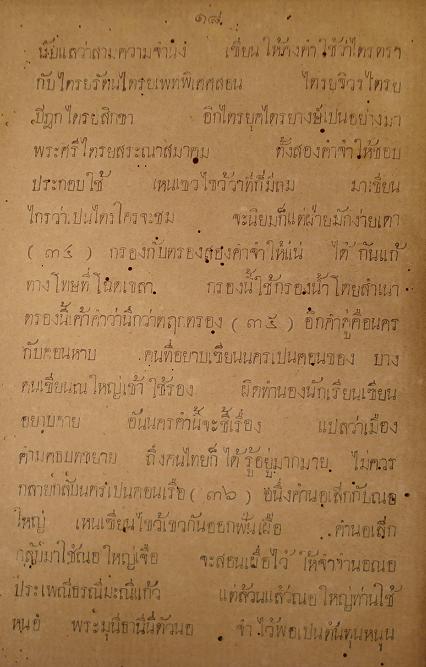 ๑๘
นับแลว่าสามความจำนง เขียนให้ตรงคำใช้ว่าไตรตรา
กับไตรยรัตนไตรยเพทพิเศศสอน ไตรยจิวรไตรย
ปีฎกไตรยสิกขา อีกไตรยุคไตรยางษ์เปนอย่างมา
พระศรีไตรยสระณาสมาคม ทั้งสองคำจำให้ชอบ
ประกอบใช้ เหนเขวไขว้ว่าที่ก็มีถม มาเขียน
ไกรว่าเปนไตรใครจะชม จะนิยมก็แต่ฝ่ายมักง่ายเดา
( ๓๔ ) กรองกับตรองสองคำจำให้แน่ ได้ กันแก้
ทางโทษที่ กรองนี้ใช้กรองน้ำโดยสำเนา
ตรองนี้เค้าคำว่านึกว่าตฤกตรอง ( ๓๕ ) อีกคำคู่คือนคร
กับคอนหาบ คนที่อยาบเขียนนครเปนคอนของ บาง
คนเขียนณใหญ่เข้าใช้ร้อง ผิดทำนองนักเรียนเขียน
อยาบคาย อันนครคำนี้จะชี้เรื่อง แปลว่าเมือง
คำมคธบทขยาย ถึงคนไทยก็ได้รู้อยู่มากมาย ไม่ควร
กลายกลับนครเปนคอนเรือ ( ๓๖ ) อนึ่งคำนอเล็กกับณอ
ใหญ่ เหนเขียนไขว้เขวกันออกฟั่นเฝือ คำนอเล็ก
กลับมาใช้ณอใหญ่เจือ จะสอนเผื่อไว้ให้จำคำนอณอ
ประเพณีธรณีมะณีแก้ว แต่ล้วนแล้วณอใหญ่ท่านใช้
หนอ พระมุนีธานีนี้ตัวนอ จำไว้พอเปนต้นทุนหนุน